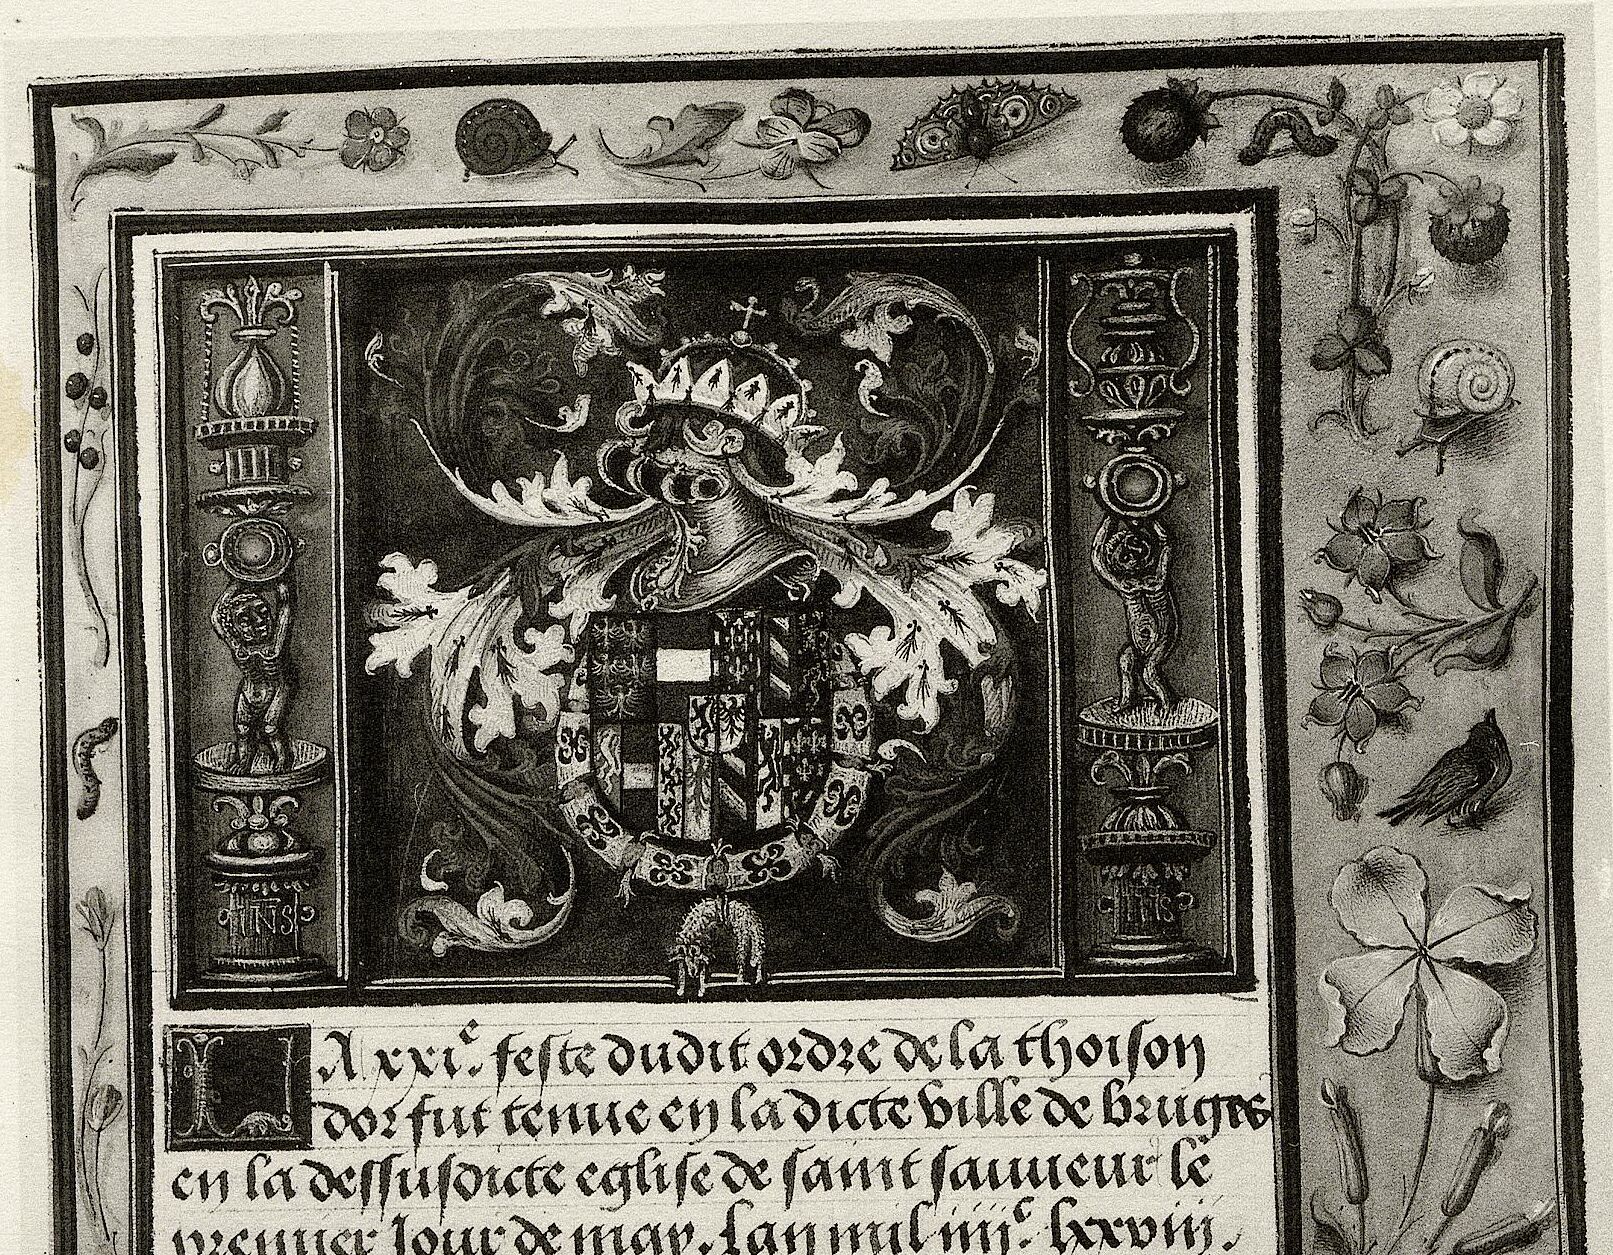 IHS
IHS
LA xxie. feste dudit ordre de la thoison
dor fut tenue en la dicte ville de bruges
en la dessusdicte eglise de saint sauueur le
premier Jour de may. Lan mil iiiic. lxxviii.